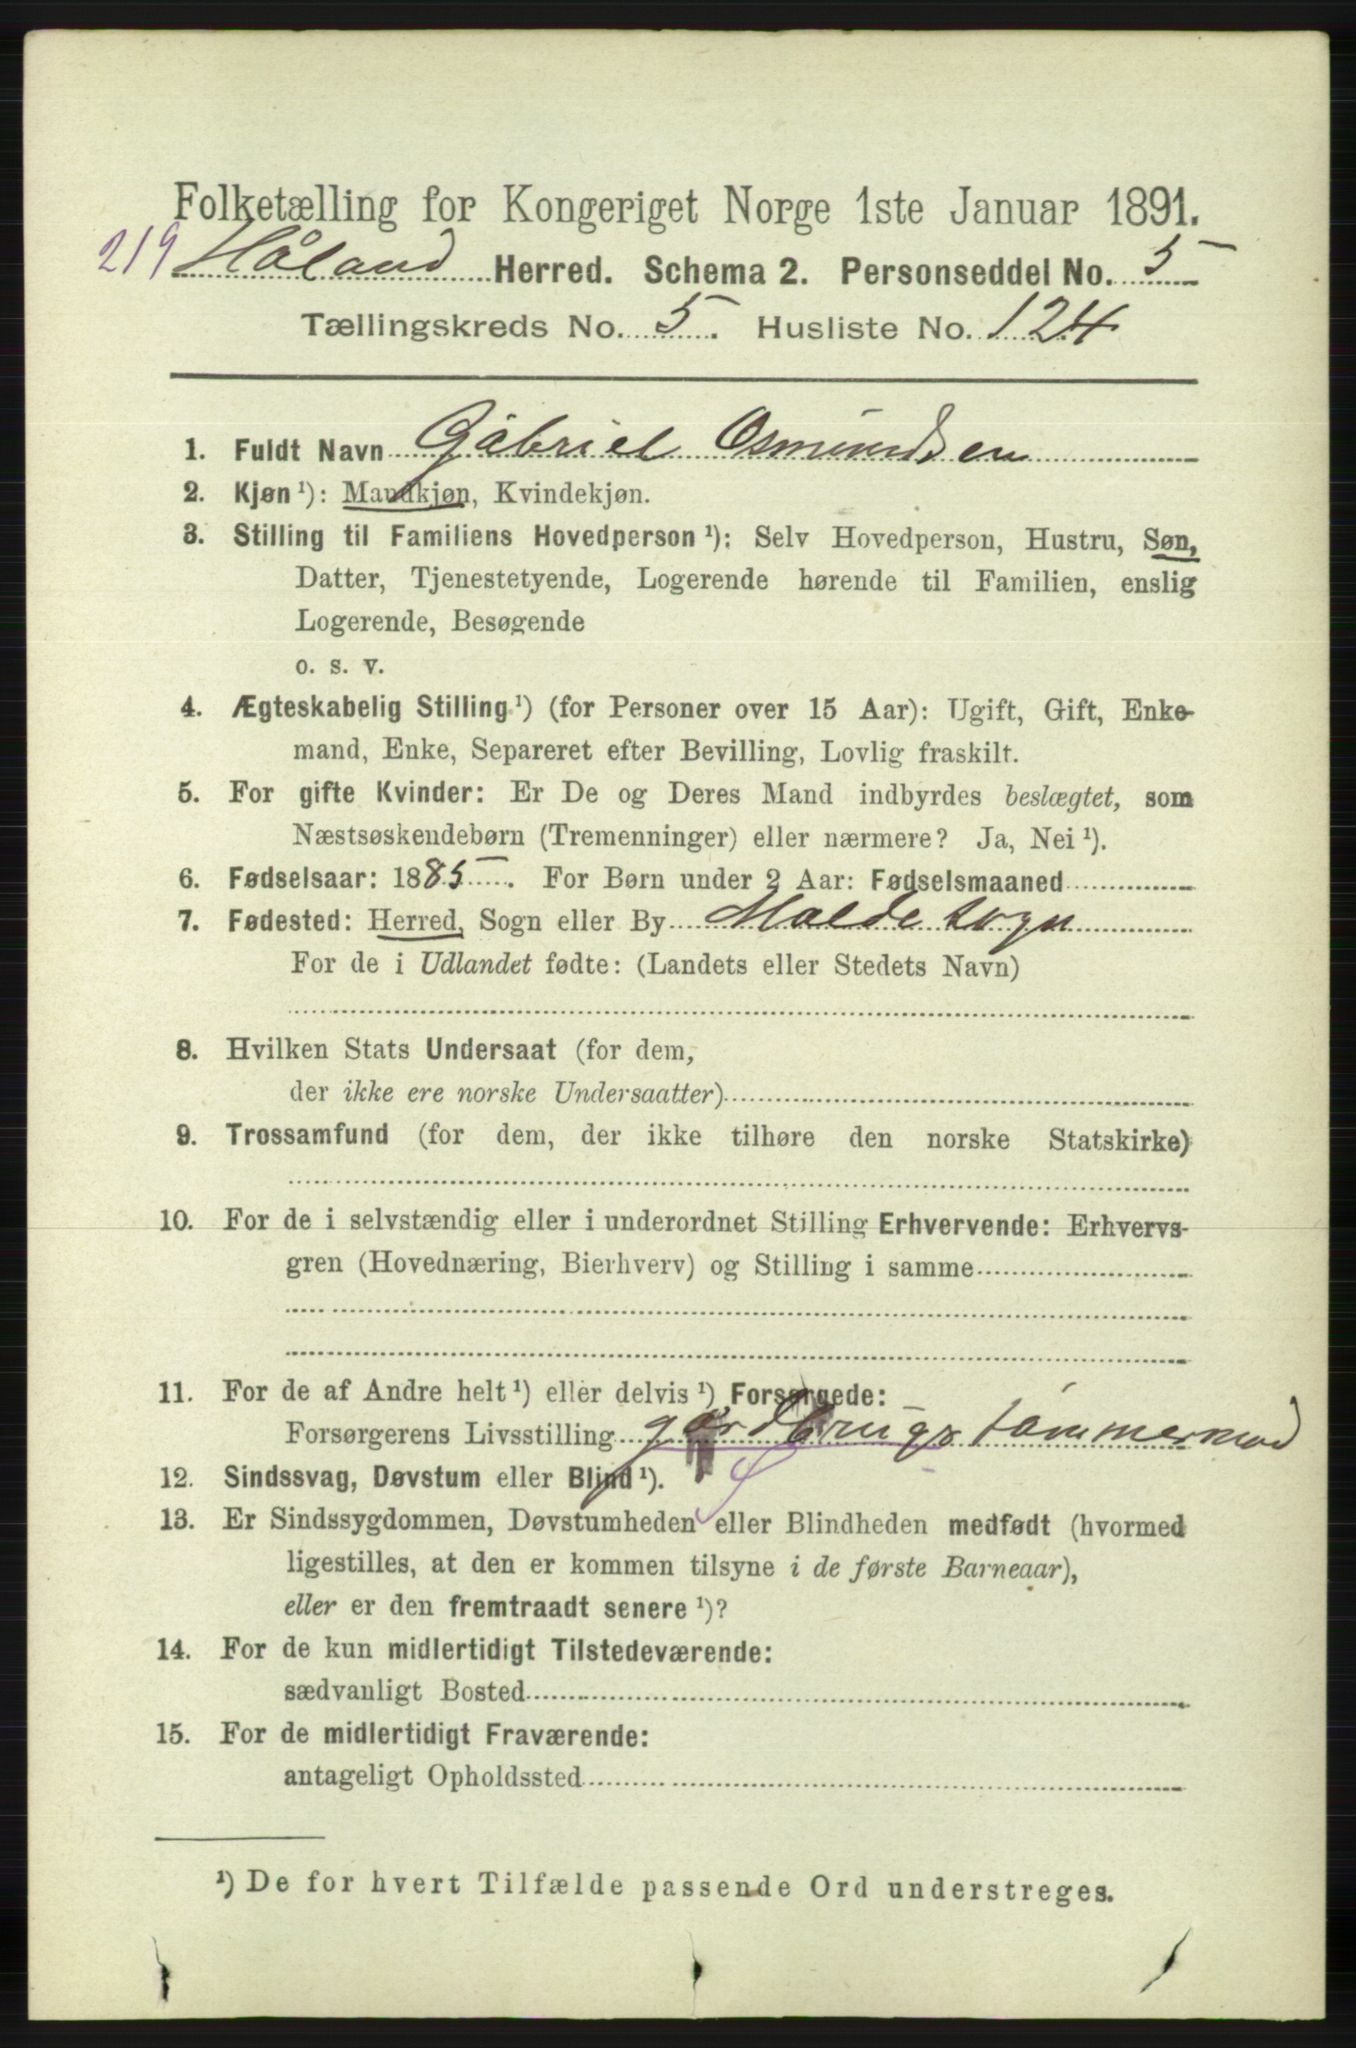 Folketælling for Kongeriget Norge 1ste Januar 1891.
219 Håland Herred. Schema 2. Personseddel No. 5
Tællingskreds No. 5. Husliste No. 124
1. Fuldt Navn Gabriel Osmundsen
2. Kjøn ¹): Mandkjøn, Kvindekjøn.
3. Stilling til Familiens Hovedperson ¹): Selv Hovedperson, Hustru, Søn,
Datter, Tjenestetyende, Logerende hørende til Familien, enslig
Logerende, Besøgende
o. s. v.
4. Ægteskabelig Stilling ¹) (for Personer over 15 Aar): Ugift, Gift, Enke-
mand, Enke, Separeret efter Bevilling, Lovlig fraskilt.
5. For gifte Kvinder: Er De og Deres Mand indbyrdes beslægtet, som
Næstsøskendebørn (Tremenninger) eller nærmere? Ja, Nei ¹).
6. Fødselsaar: 1885. For Børn under 2 Aar: Fødselsmaaned
7. Fødested: Herred, Sogn eller By Malde sogn
For de i Udlandet fødte: (Landets eller Stedets Navn)
8. Hvilken Stats Undersaat (for dem,
der ikke ere norske Undersaatter)
9. Trossamfund (for dem, der ikke tilhøre den norske Statskirke)
10. For de i selvstændig eller i underordnet Stilling Erhvervende: Erhvervs-
gren (Hovednæring, Bierhverv) og Stilling i samme
11. For de af Andre helt ¹) eller delvis ¹) Forsørgede:
Forsørgerens Livsstilling gardbrugs tømmermad
12. Sindssvag, Døvstum eller Blind ¹).
13. Er Sindssygdommen, Døvstumheden eller Blindheden medfødt (hvormed
ligestilles, at den er kommen tilsyne i de første Barneaar),
eller er den fremtraadt senere ¹)?
14. For de kun midlertidigt Tilstedeværende:
sædvanligt Bosted
15. For de midlertidigt Fraværende:
antageligt Opholdssted
¹) De for hvert Tilfælde passende Ord understreges.